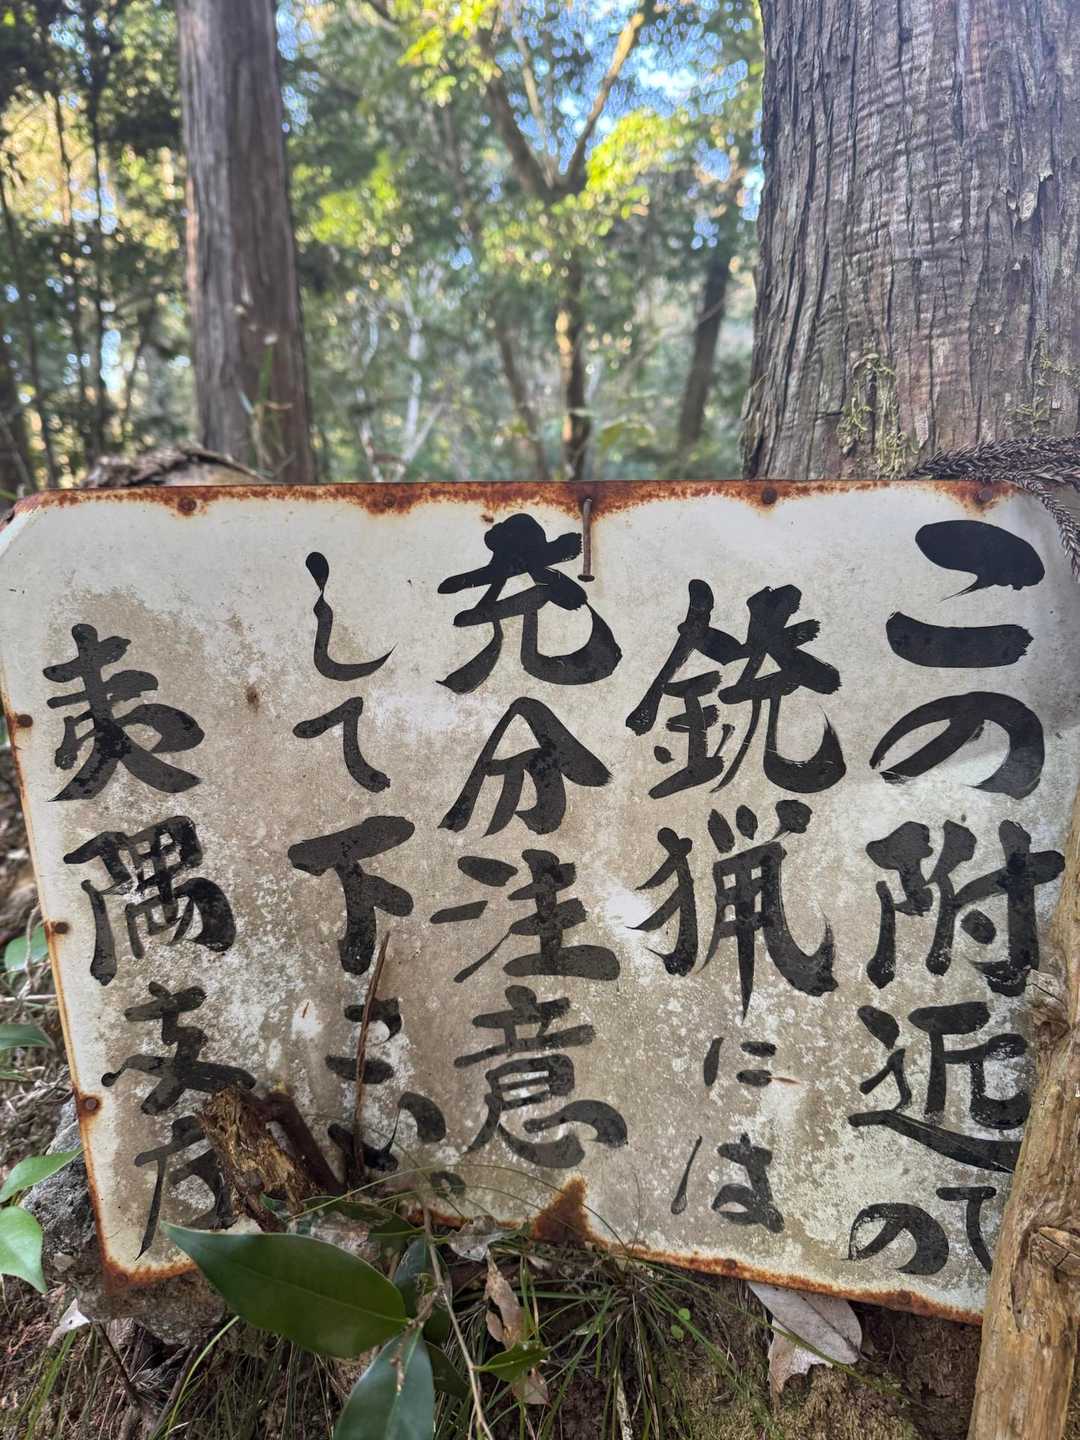 この附近での
銃猟には
充分注意
して下さい
夷隅支庁